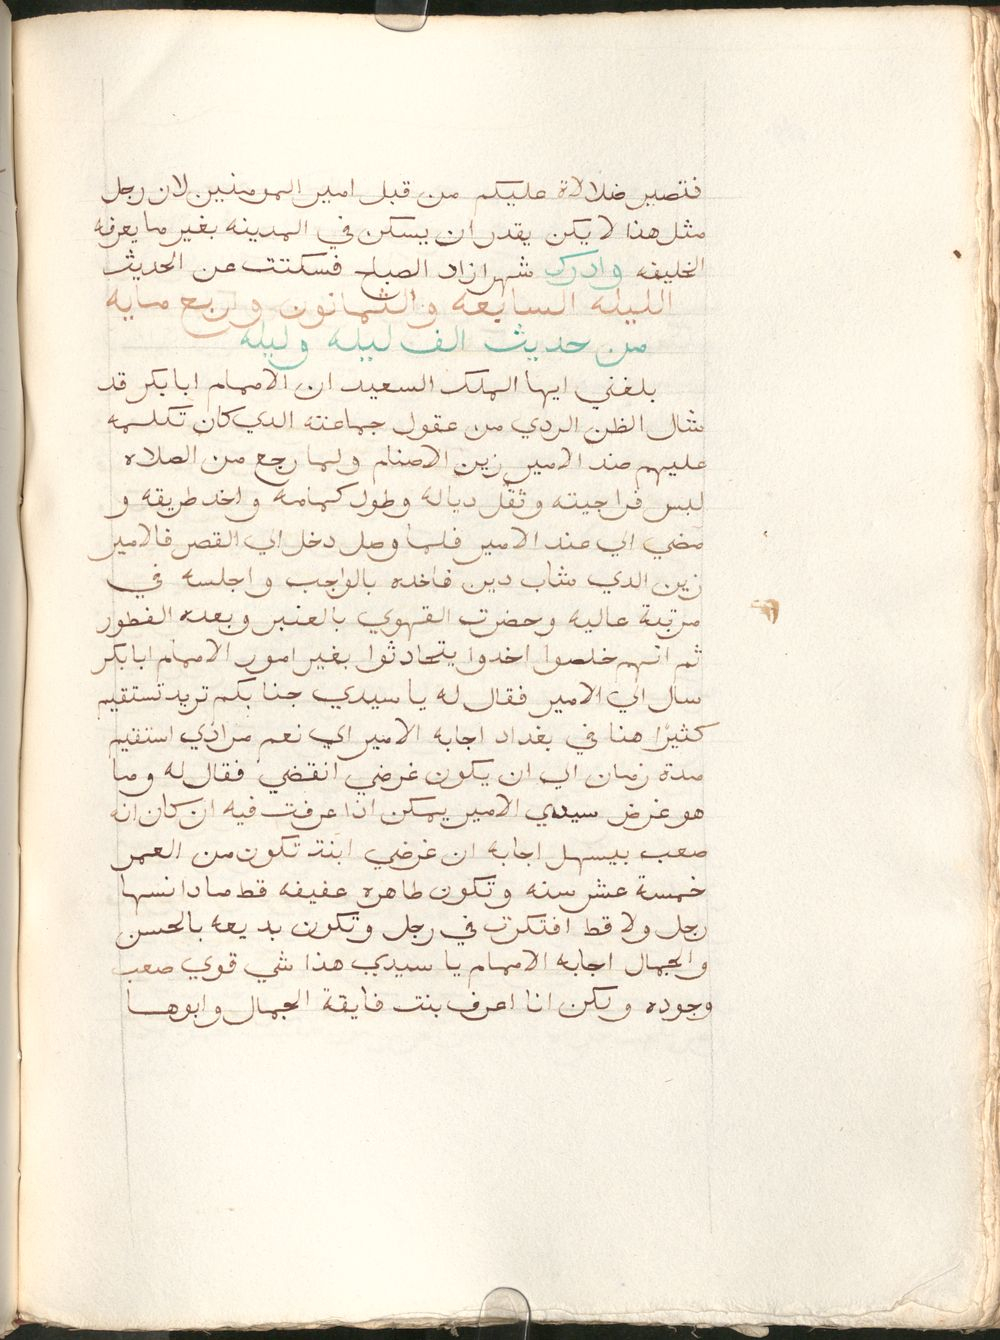 فتصير ضلالاة عليكم من قبل امير المومنين لان رجل
مثل هذا لا يكن يقدر ان يسكن في المدينه بغير ما يعرفه
الخليفه وادرك شهرازاد الصباح فسكتت عن الحديث
الليله السابعه والثمانون واربع مايه
من حديث الف ليله وليله
بلغني ايها الملك السعيد ان الامام ابابكر قد
شال الظن الردي من عقول جماعته الدي كان تكلمه
عليهم ضد الامير زين الاصنام ولما رجع من الصلاه
لبس فراجيته وثقل دياله وطول كمامه واخد طريقه و
مضي الي عند الامير فلما وصل دخل الي القصر فالامير
زين الدي مثاب دين فاخده بالواجب واجلسه في
مرتبة عاليه وحضرت القهوي بالعنبر وبعده الفطور
ثم انهم خلصوا اخدوا يتحادثوا بغير امور الامام ابابكر
سال الي الامير فقال له يا سيدي جنابكم تريد تستقيم
كثيرًا هنا في بغداد اجابه الامير اي نعم مرادي استقيم
مدة زمان الي ان يكون غرضي انقضي فقال له وما
هو غرض سيدي الامير يمكن اذا عرفت فيه ان كان انه
صعب بيسهل اجابه ان غرضي ابنت تكون من العمر
خمسة عشر سنه وتكون طاهره عفيفه قط مادانسها
رجل ولا قط افتكرت في رجل وتكون بديعه بالحسن
والجمال اجابه الامام يا سيدي هذا شي قوي صعب
وجوده ولكن انا اعرف بنت فايقة الجمال وابوها